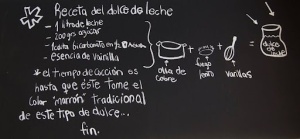 Receta del dulce de leche
- 1 litro de leche
- 200 grs azúcar
- 1 cdita bicarbonato en
- esencia de vainilla
* el tiempo de cocción es
hasta que éste tome el
color "marrón" tradicional
de este tipo de dulce...
fin.
olla de
cobre
+
fuego
lento
+
varillas
=
dulce
de
leche